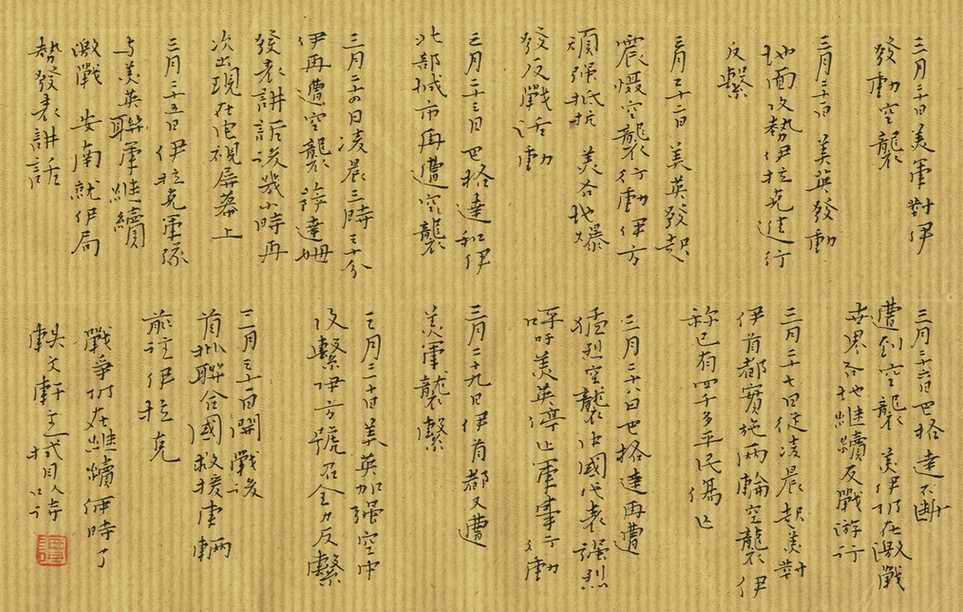 三月二十日美軍對伊
發動空襲
三月二十一日 美英發動
地面攻勢伊拉克進行
反擊
三月二十二日 美英發起
震懾空襲行動伊方
頑强抵抗 美各地爆
發反戰活動
三月二十三日巴格達和伊
北部城市再遭空襲
三月二十四日凌晨三時三十分
伊再遭空襲 薩達姆
發表講話後幾小時再
次出現在电視屏幕上
三月二十五日伊拉克軍隊
与美英聯軍继續
激戰 安南就伊局
勢發表講話
三月二十六日巴格達不断
遭到空襲 美伊仍在激戰
世界各地继續反戰游行
三月二十七日從凌晨起美對
伊首都實施兩輪空襲伊
称已有四千多平民傷亡
三月二十八日巴格達再遭
猛烈空襲中國代表强烈
呼吁美英停止軍事行動
三月二十九日伊首都又遭
美軍襲擊
三月三十日美英加强空中
攻擊伊方號召全力反擊
三月三十一日開戰後
首批聯合國救援車輛
前往伊拉克
戰爭仍在继續何時了
軼文軒主拭目以待